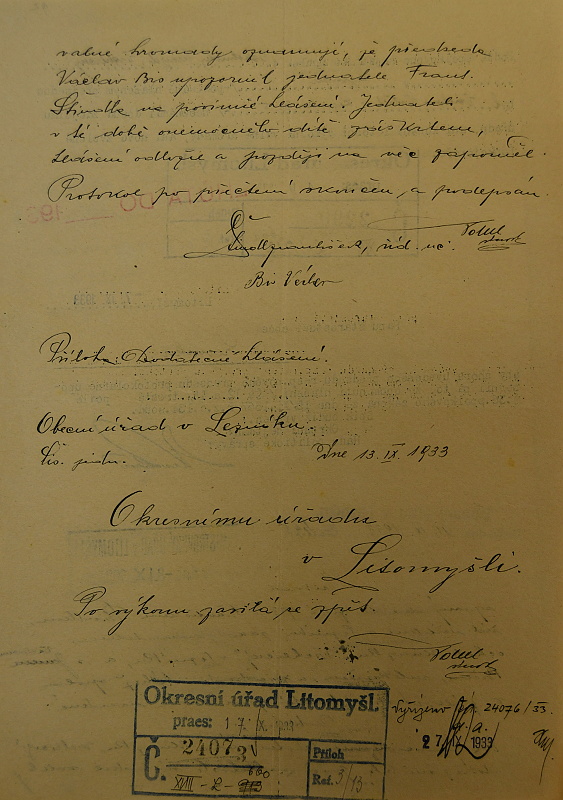 valné hromady oznamují, že předseda
Václav Bis upozornil jednatele Frant.
Štindla na povinné hlášení. Jednateli
v té době onemocnělo dítě záškrtem,
hlášení odložil a později na věc zapomněl.
Protokol po přečtení skončen, a podepsán.
říd. uč.
starosta
Bis Václav
Příloha: Dodatečné hlášení.
Obecní úřad v Lezníku.
čís. jedn.
Dne 13. IX. 1933
Okresnímu úřadu
v Litomyšli.
Po výkonu zavítá se zpět.
starosta
Okresní úřad Litomyšl.
praes: 17. IX. 1933
Č. 24073/
XVIII-2-
Příloh
Ref. 3/13
Vyřízeno čj. 24076/33.
27. IX. 1933